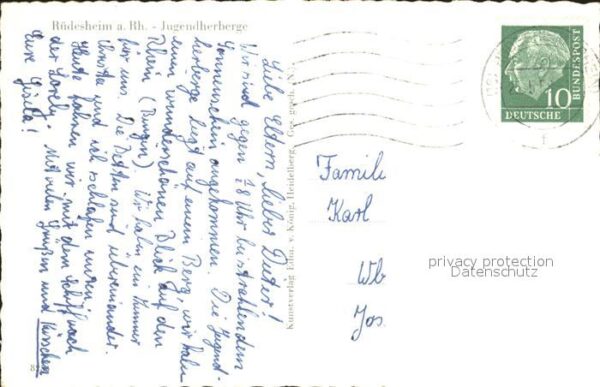 Rüdesheim a. Rh. - Jugendherberge
Liebe Eltern, lieber Dieter!
Wir sind gegen 18 Uhr bei strahlendem
Sonnenschein angekommen. Die Jugend-
herberge liegt auf einem Berg, wir haben
einen wunderschönen Blick auf den
Rhein (Bingen). Wir haben ein Zimmer
für uns. Die Betten sind übereinander.
Christa und ich schlafen unten.
Heute fahren wir mit dem Schiff nach
der Lorely. Mit vielen Grüßen und Küssen
Eure Gisela!
Kunstverlag Edm. v. König, Heidelberg Ges. gesch. (N.)
DEUTSCHE
BUNDESPOST
10
Famili
Karl
Wb
Jos.
privacy protection
Datenschutz